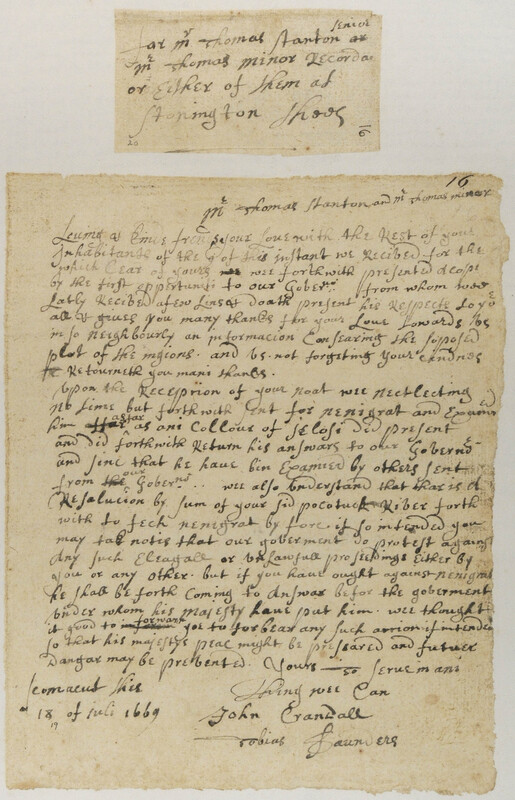 senior
For mr Thomas Stanton or
mr Thomas minor Recorda
or Either of them at
Stonington These
20
6
16
mr Thomas Stanton and mr Thomas minor
Loving & kinde frends youe love with the Rest of your
Inhabitants of the of this instant we Recived for the
which Ceare of yours we forthwith presented a cope
by the first oppertunti to our Govern from whom wee
Latly Recived a few Lines doath present his Respects to you
all & gives you many thanks for your Love towards Us
in so neighbourly an informacion Consarning the soposed
plot of the ingeons. and Us not forgeting your kindnes
Retourneth you mani thanks.
Upon the Recepcion of your noat wee neclecting
no time but forthwith sent for nenigrat and Examned
him as far as ani Collour of Jelosi did present
and did forthwith Return his answars to our Govern
and sinc that he have bin Examied by others sent
from our Govern wee also understand that thar is a
Resalucion by sum of your sid pocatuck River forth
with to fech nenigrat by forc. if so intended you
may tak notes that our goverment do protest against
any such Eleagall or Unlawfull proseedings Either by
you or any other. but if you have ought against nenigrat
he shall be forth Coming to answar befor the goverment
under whom his majesty have put him. wee thought
it good to yoe to forbear any such action if intended
so that his majestys peac might be presarved and futuer
Dangar may be prevented. Yours to serve in ani
thing wee Can
Scomacut this
18 of iuli 1669
19
John Crandall
Tobias Saunders